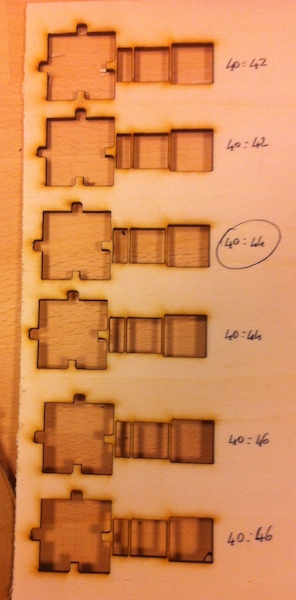 40:42
40:42
40:44
40:44
40:46
40:46